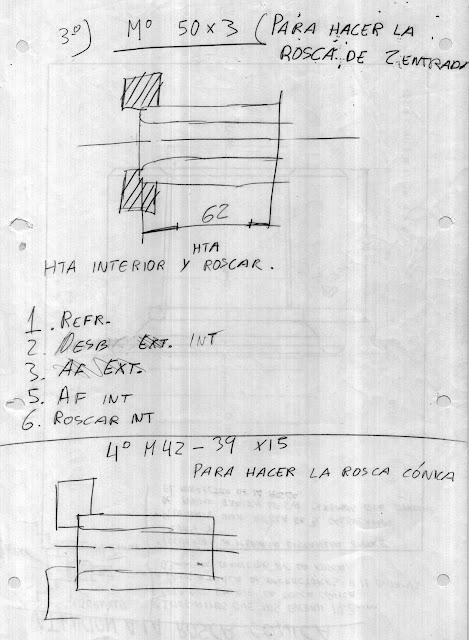 3º) Mº 50x3 (PARA HACER LA
ROSCA DE 2 ENTRADA
62
HTA
HTA INTERIOR Y ROSCAR.
1. REFR.
2. DESB EXT. INT
3. AF EXT.
5. AF INT
6. ROSCAR INT
4º M42-39 x15
PARA HACER LA ROSCA CÓNICA